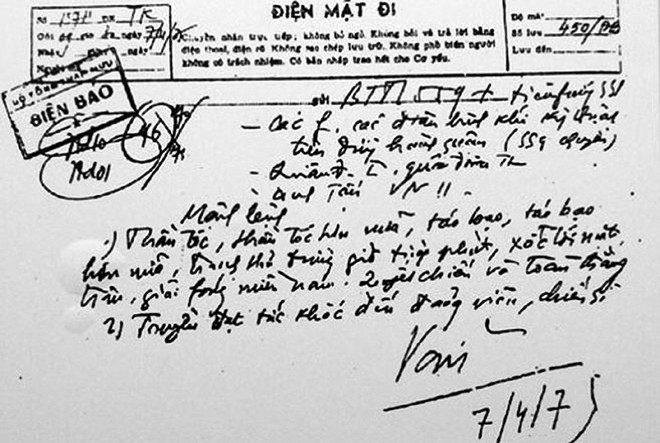 ĐIỆN MẬT ĐI
Số 157 ĐK TK
ngày 7/4/75
Chuyển nhận trực tiếp; không bỏ ngỏ. Không hỏi và trả lời bằng
điện thoại, điện rõ. Không sao chép lưu trữ. Không phổ biến người
không có trách nhiệm. Có bản nháp trao hết cho Cơ yếu.
Độ mã:
Số lưu: 450/
Lưu đến:
BỘ TỔNG THAM MƯU
ĐIỆN BÁO
GỬI BTTL 559 +
- Các f, các đoàn binh khí kỹ thuật
trên đường hành quân (559 chuyển)
- Quân Đ. I, quân đoàn
Mệnh lệnh
1) Thần tốc, thần tốc hơn nữa, táo bạo, táo bạo
hơn nữa, tranh thủ từng giờ từng phút, xốc tới mặt
trận, giải fóng miền nam. Quyết chiến và toàn thắng
2) Truyền đạt tức khắc đến đảng viên, chiến sĩ
Văn
7/4/75